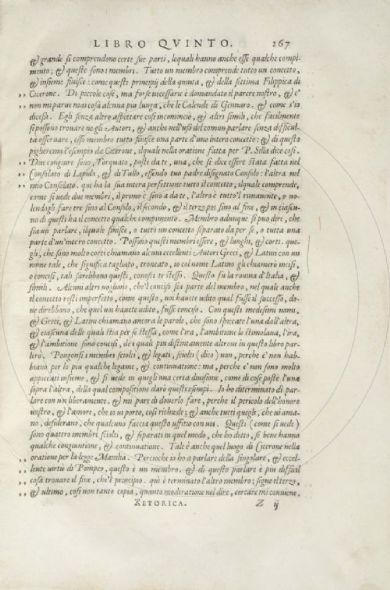 LIBRO QVINTO. 267
& grande si comprendono certe sue parti, lequali hanno anche esse qualche compi-
mento; & queste sono i membri. Tutto un membro comprende tutto un concetto,
& insieme finisce: come questi principij della nona, & della settima Filippica di
Cicerone. Di piccole cose, ma forse necessarie è domandato il parere nostro, & c'
non mi par as noi cosa alcuna piu lunga, che le Calende di Gennaro. & come s'in
dicesse. Egli senza altro aspettare così incominciò, & altri simili, che facilmente
si possono trouare ne gli Autori, & anche nell'uso del comun parlare senza difficul-
ta osseruare, esso membro tutto finisce una parte d'uno intero concetto: & di questo
piglieremo l'esempio da Cicerone, ilquale nella oratione fatta per P. Silla dice così.
Due congiure sono, Torquato, poste da te, una, che si dice essere stata fatta nel
Consolato di Lepido, & di Tullo, essendo tuo padre disegnato Consolo: l'altra nel
mio Consolato. qui ha la sua intera perfettione tutto il concetto, ilquale comprende,
come si uede due membri, il primo è sino a da te, l'altro è tutto'l rimanente,
di questi ha il concetto qualche compimento. Membro adunque si puo dire, che
sia un parlare, ilquale finisce, o tutti un concetto separato da per se, o tutta una
parte d'un'intero concetto. Possono questi membri essere, & lunghi, & corti. que-
gli, che sono molto corti chiamano alcuni eccellenti Autori Greci, & Latini con un
nome tale, che significa tagliato, troncato, io col nome Latino gli chiamerò incisi,
o concisi, tali sarebbono questi, conosci te stesso. Questo fu la rouina d'Italia, &
simili. Alcuni altri uogliono, che'l conciso sia parte del membro, nel quale anche
il concetto resti imperfetto, come questo, noi hauete udito qual fusse il successo, do-
ue direbbono, che quel noi hauete udito, fusse conciso. Con questi medesimi nomi,
& Greci, & Latini chiamano ancora le parole, che sono spiccate l'una dall'altra,
& ciascuna delle quali stia per se stessa, come l'ira, l'ambitione lo stimolaua, l'ira,
& l'ambitione sono concisi, de i quali piu distintamente altroue in questo libro par-
lerò. Pongonsi i membri sciolti, & legati, sciolti (dico) non, perche e' non hab-
biano per lo piu qualche legame, & continuatione: ma, perche e' non sono molto
appiccati insieme, & si uede in quegli una certa diuisione, come di cose poste l'una
sopra l'altra, della qual compositione darò questo esempio. Io ho determinato di par-
lare con uoi liberamente, & mi pare di douerlo fare, perche il pericolo dell'honore
uostro, & l'amore, che io ui porto, così richiede; & anche tutti quegli, che ui ama-
no, desiderano, che qualcuno faccia questo uffitio con uoi. Questi (come si uede)
sono quattro membri sciolti, & separati in quel modo, che ho detto, si bene hanno
qualche congiuntione, & continuatione. Tale è anche quel luogo di Cicerone nella
oratione per la legge Manilia. Percioche io ho a parlare della singolare, & eccel-
lente uirtù di Pompeo, questo è un membro. & di questo parlare è piu difficil
cosa trouare il fine, che'l principio. qui è terminato l'altro membro; segue il terzo,
& ultimo, così non tanto copia, quanto moderatione nel dire, cercare mi conuiene,
RETORICA. Z ij